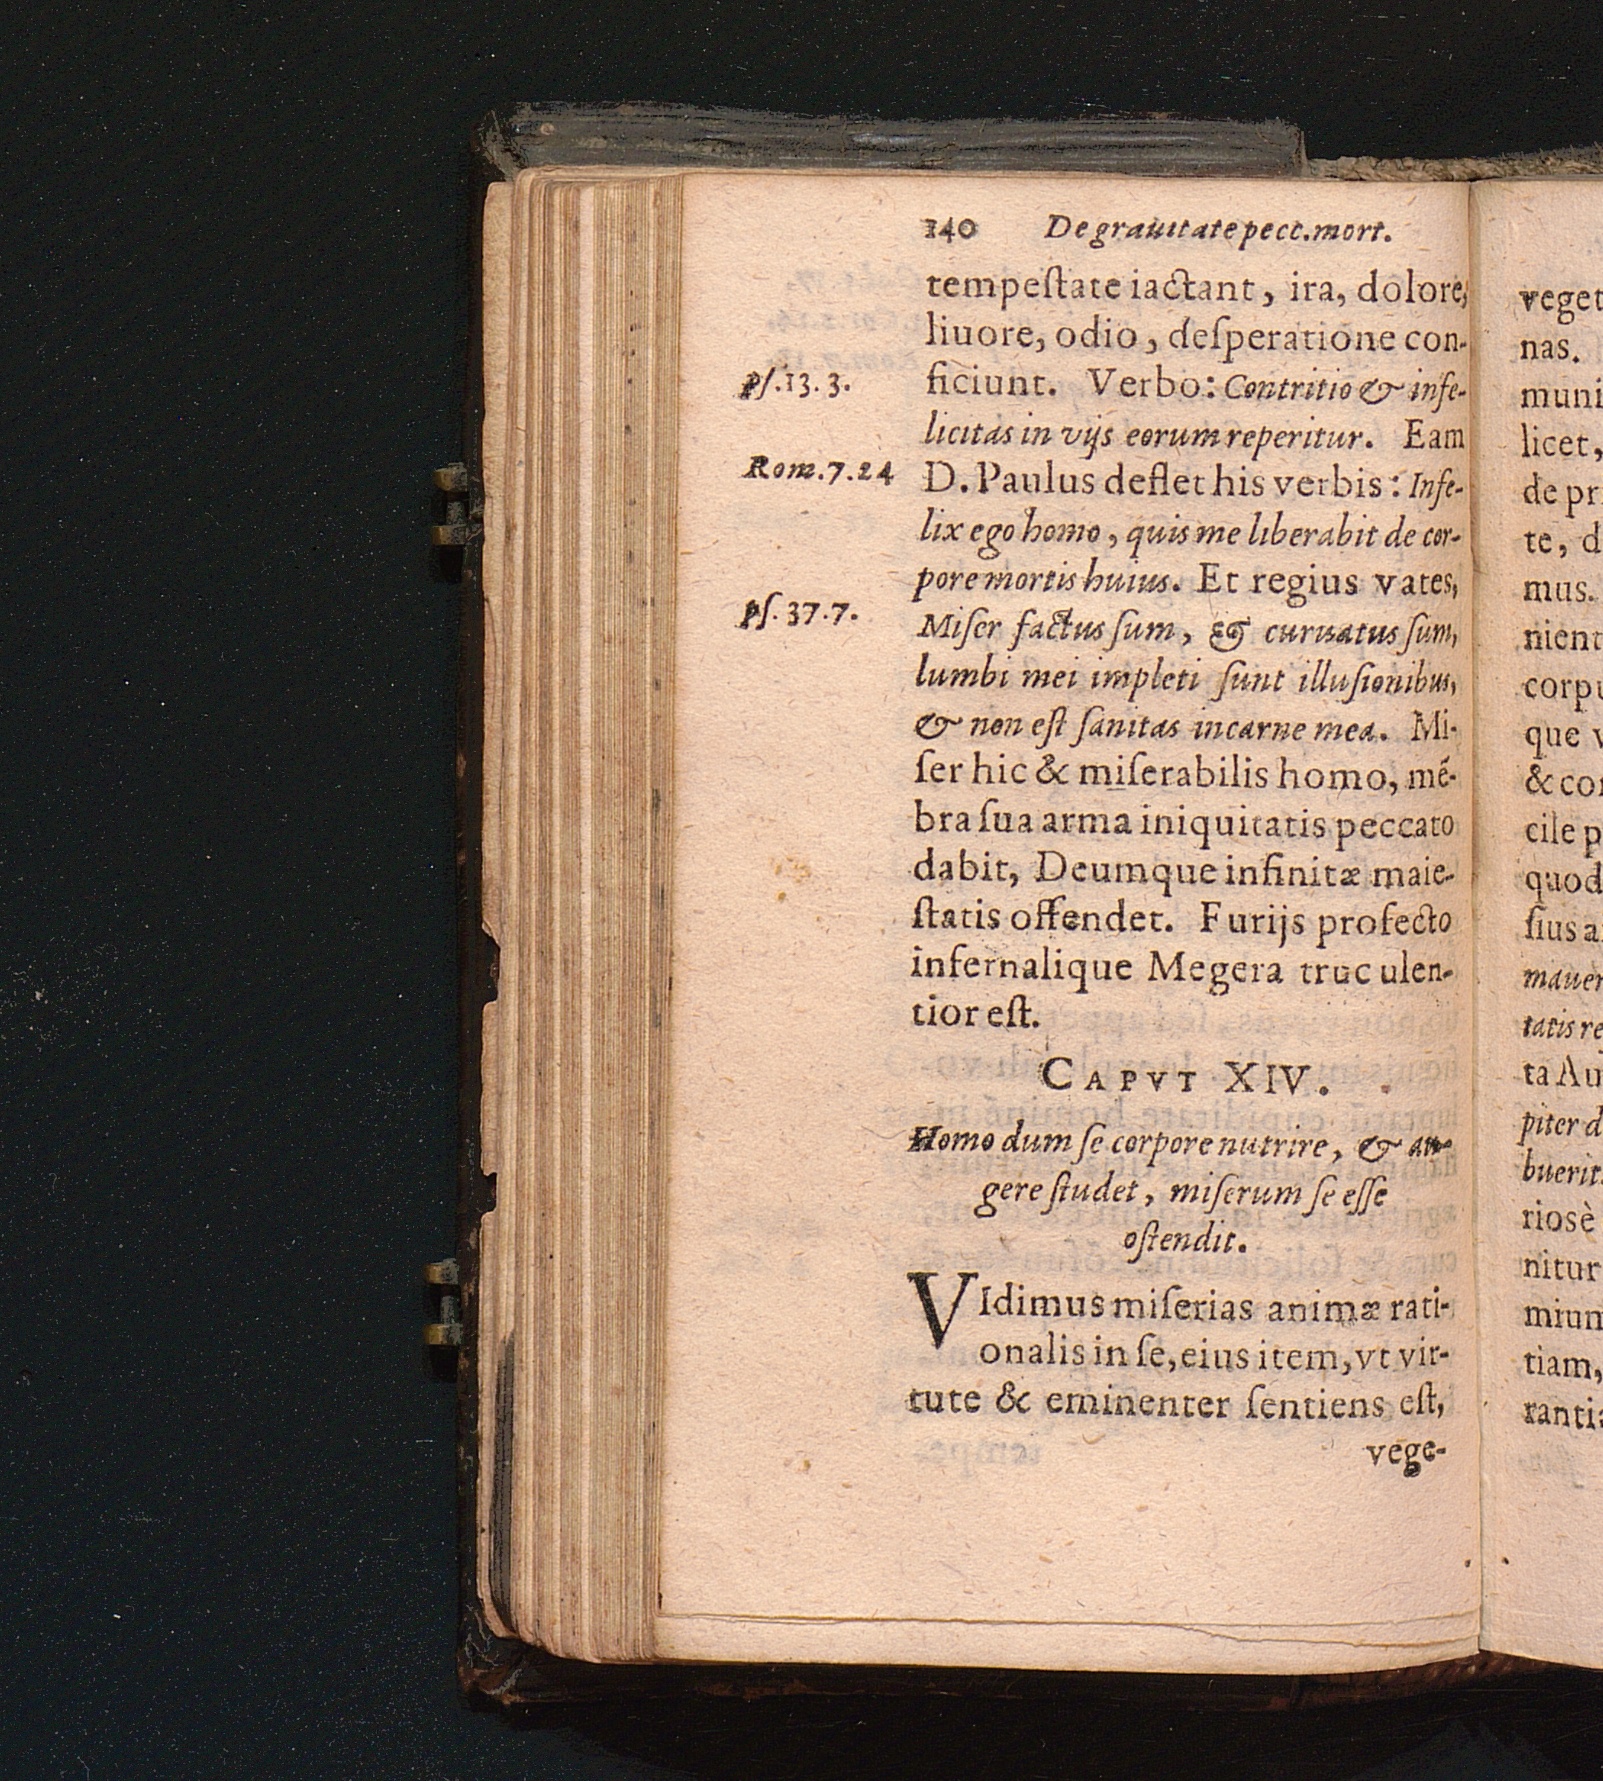 140 De grauitate pecc.mort.
tempeſtate iactant, ira, dolore,
liuore, odio, deſperatione con-
Pſ.13.3.
ficiunt. Verbo: Contritio & infe-
licitas in vijs eorum reperitur. Eam
Rom.7.24
D. Paulus deflet his verbis: Infe-
lix ego homo, quis me liberabit de cor-
pore mortis huius. Et regius vates,
Pſ.37.7.
Miſer factus ſum, & curuatus ſum,
lumbi mei impleti ſunt illuſionibus,
& non eſt ſanitas in carne mea. Mi-
ſer hic & miſerabilis homo, mē-
bra ſua arma iniquitatis peccato
dabit, Deumque infinitæ maie-
ſtatis offendet. Furijs profecto
infernalique Megera truculen-
tior eſt.
CAPVT XIV.
Homo dum ſe corpore nutrire, & au-
gere ſtudet, miſerum ſe eſſe
oſtendit.
VIdimus miſerias animæ rati-
onalis in ſe, eius item, vt vir-
tute & eminenter ſentiens eſt,
vege-
veget
nas.
muni
licet,
de pr
te, d
mus.
nient
corpu
que v
& co
cile p
quod
ſius a
mauer
tatis re
ta Au
piter d
buerit.
riosè
nitur
mium
tiam,
rantia